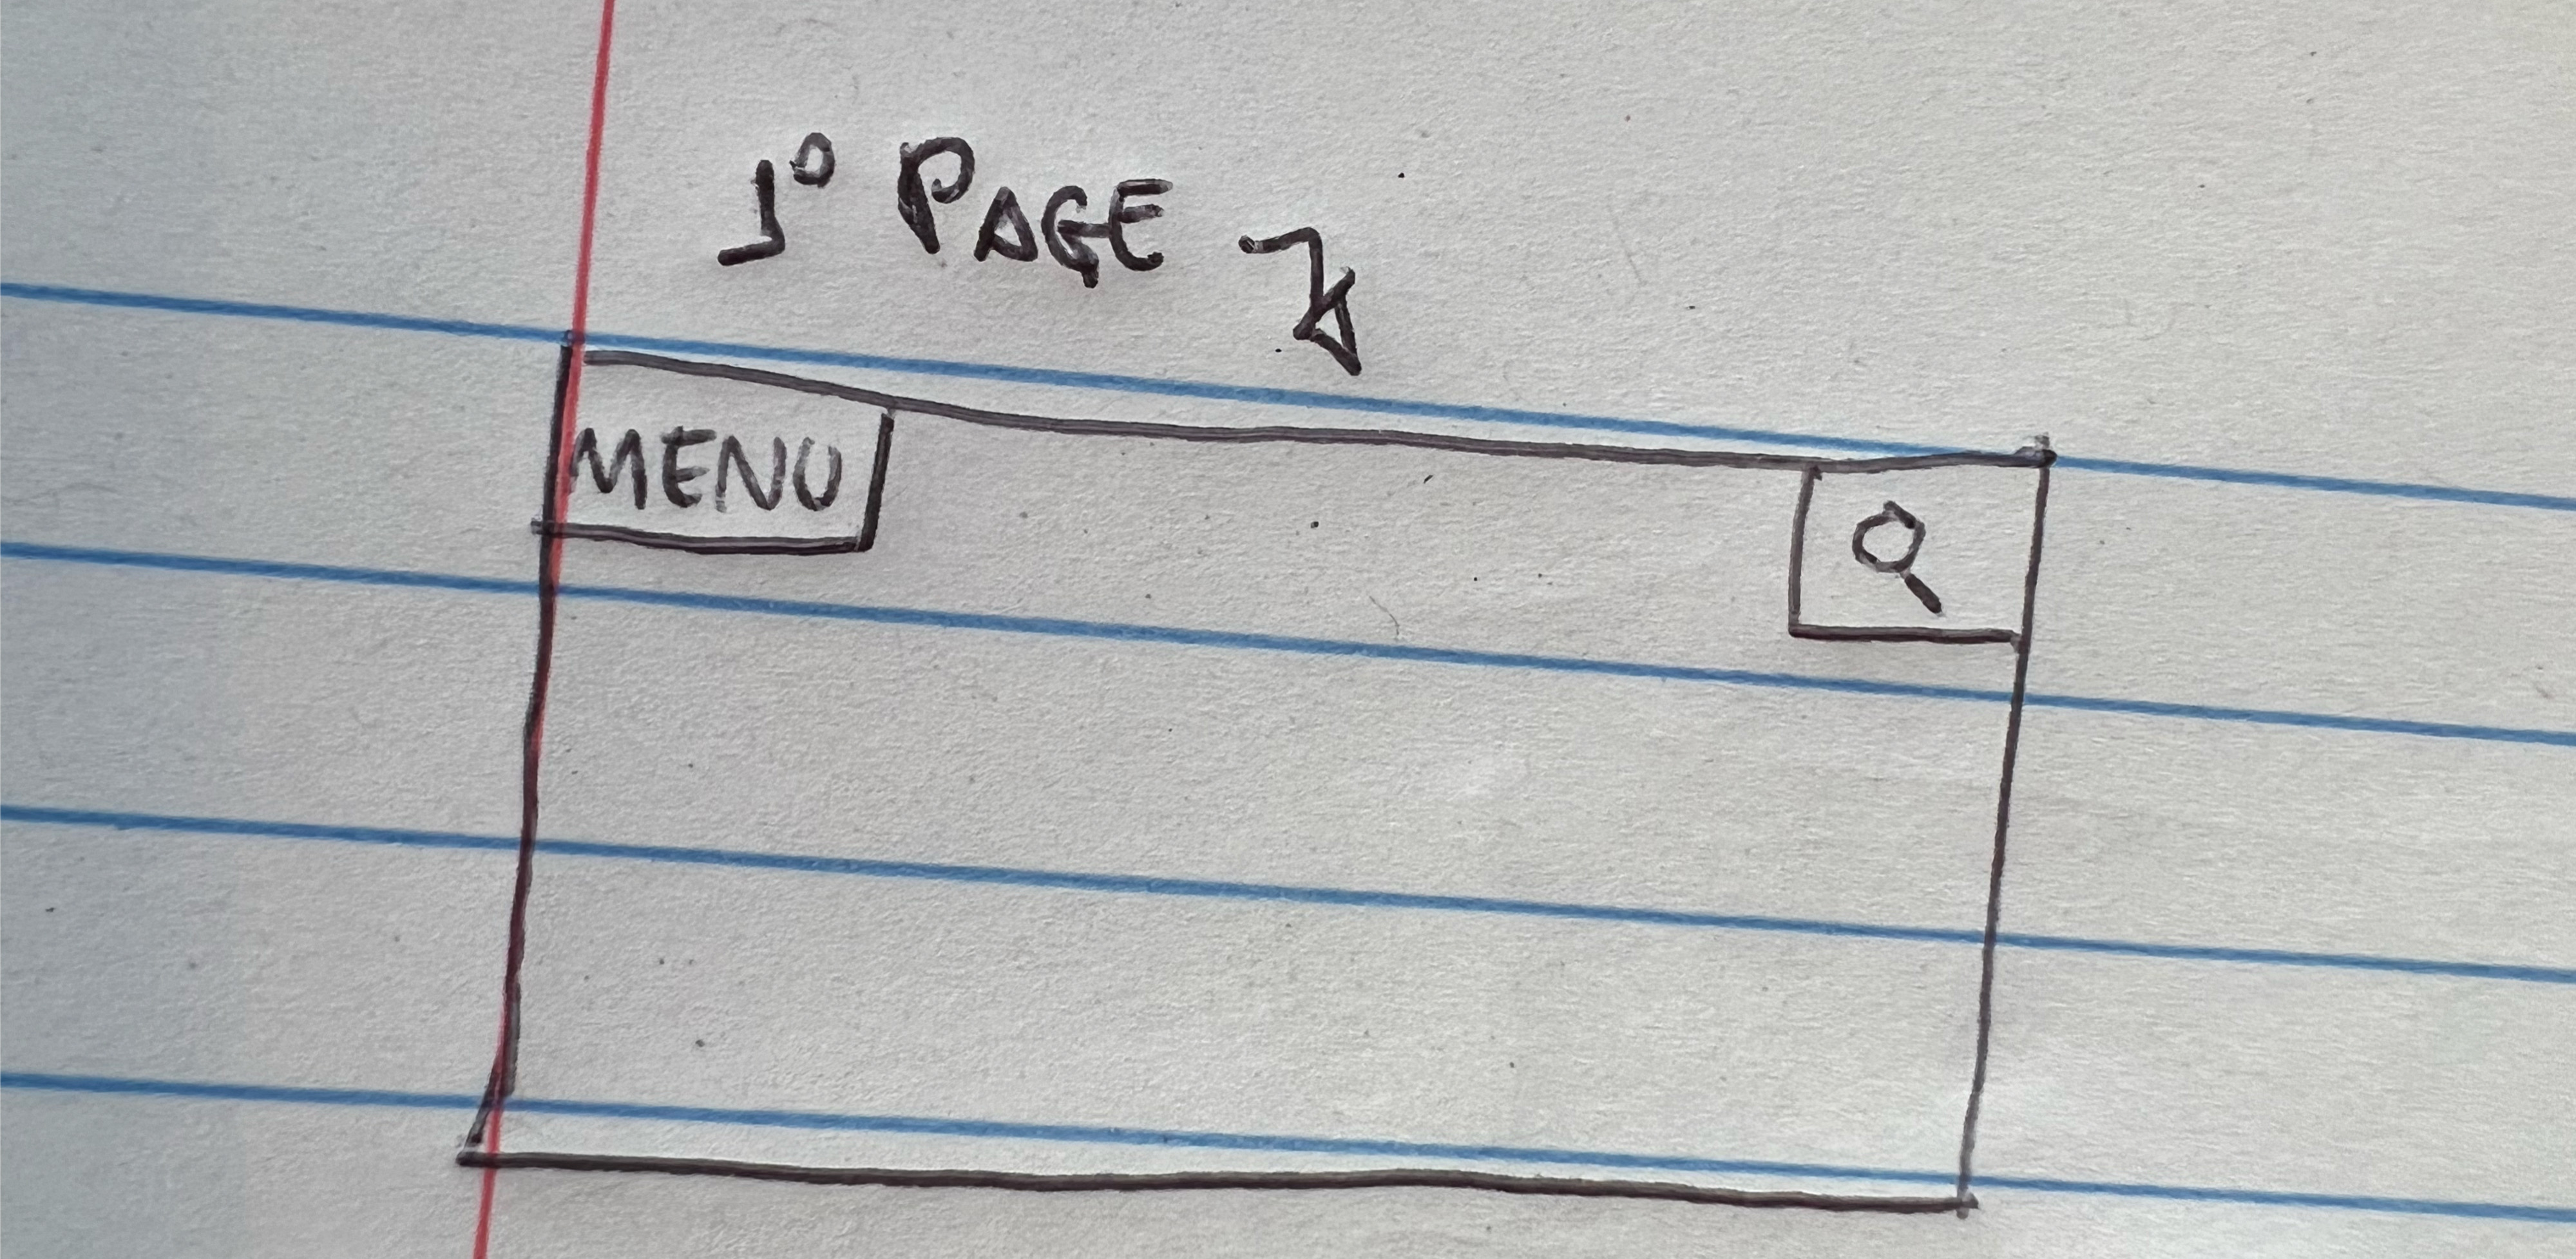 1º PAGE
MENU